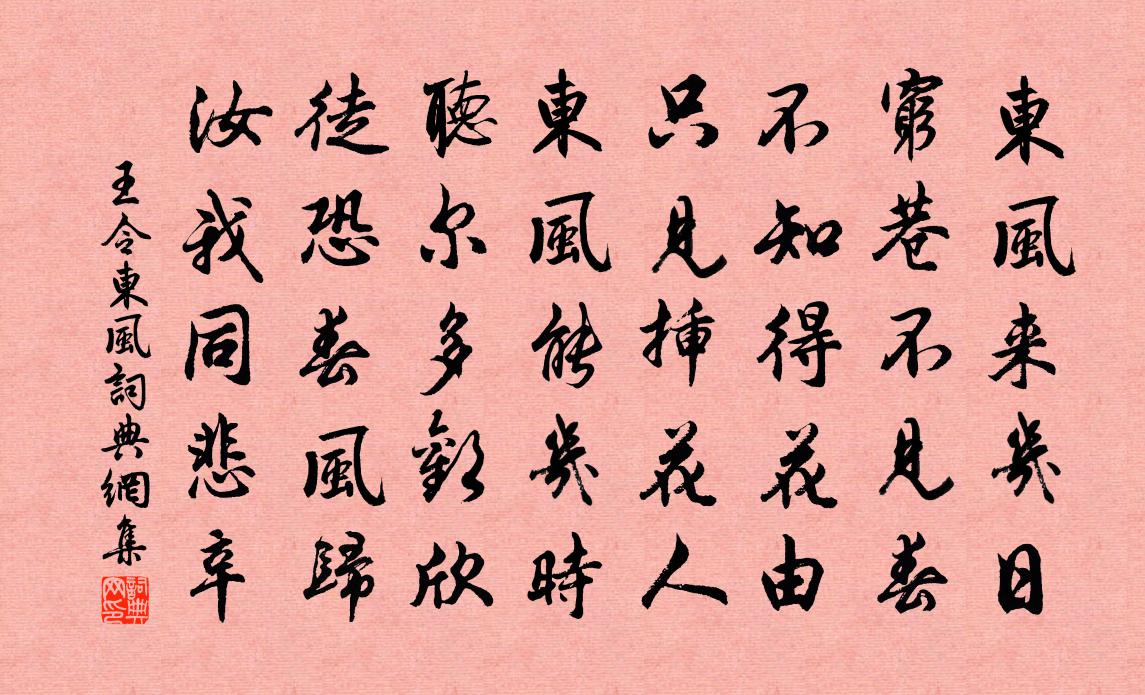 東風来幾日
窮巷不見春
不知得花由
只見挿花人
東風能幾時
聽尔多歡欣
徒恐春風歸
汝我同悲辛
王令東風詞典網集
詞典网印